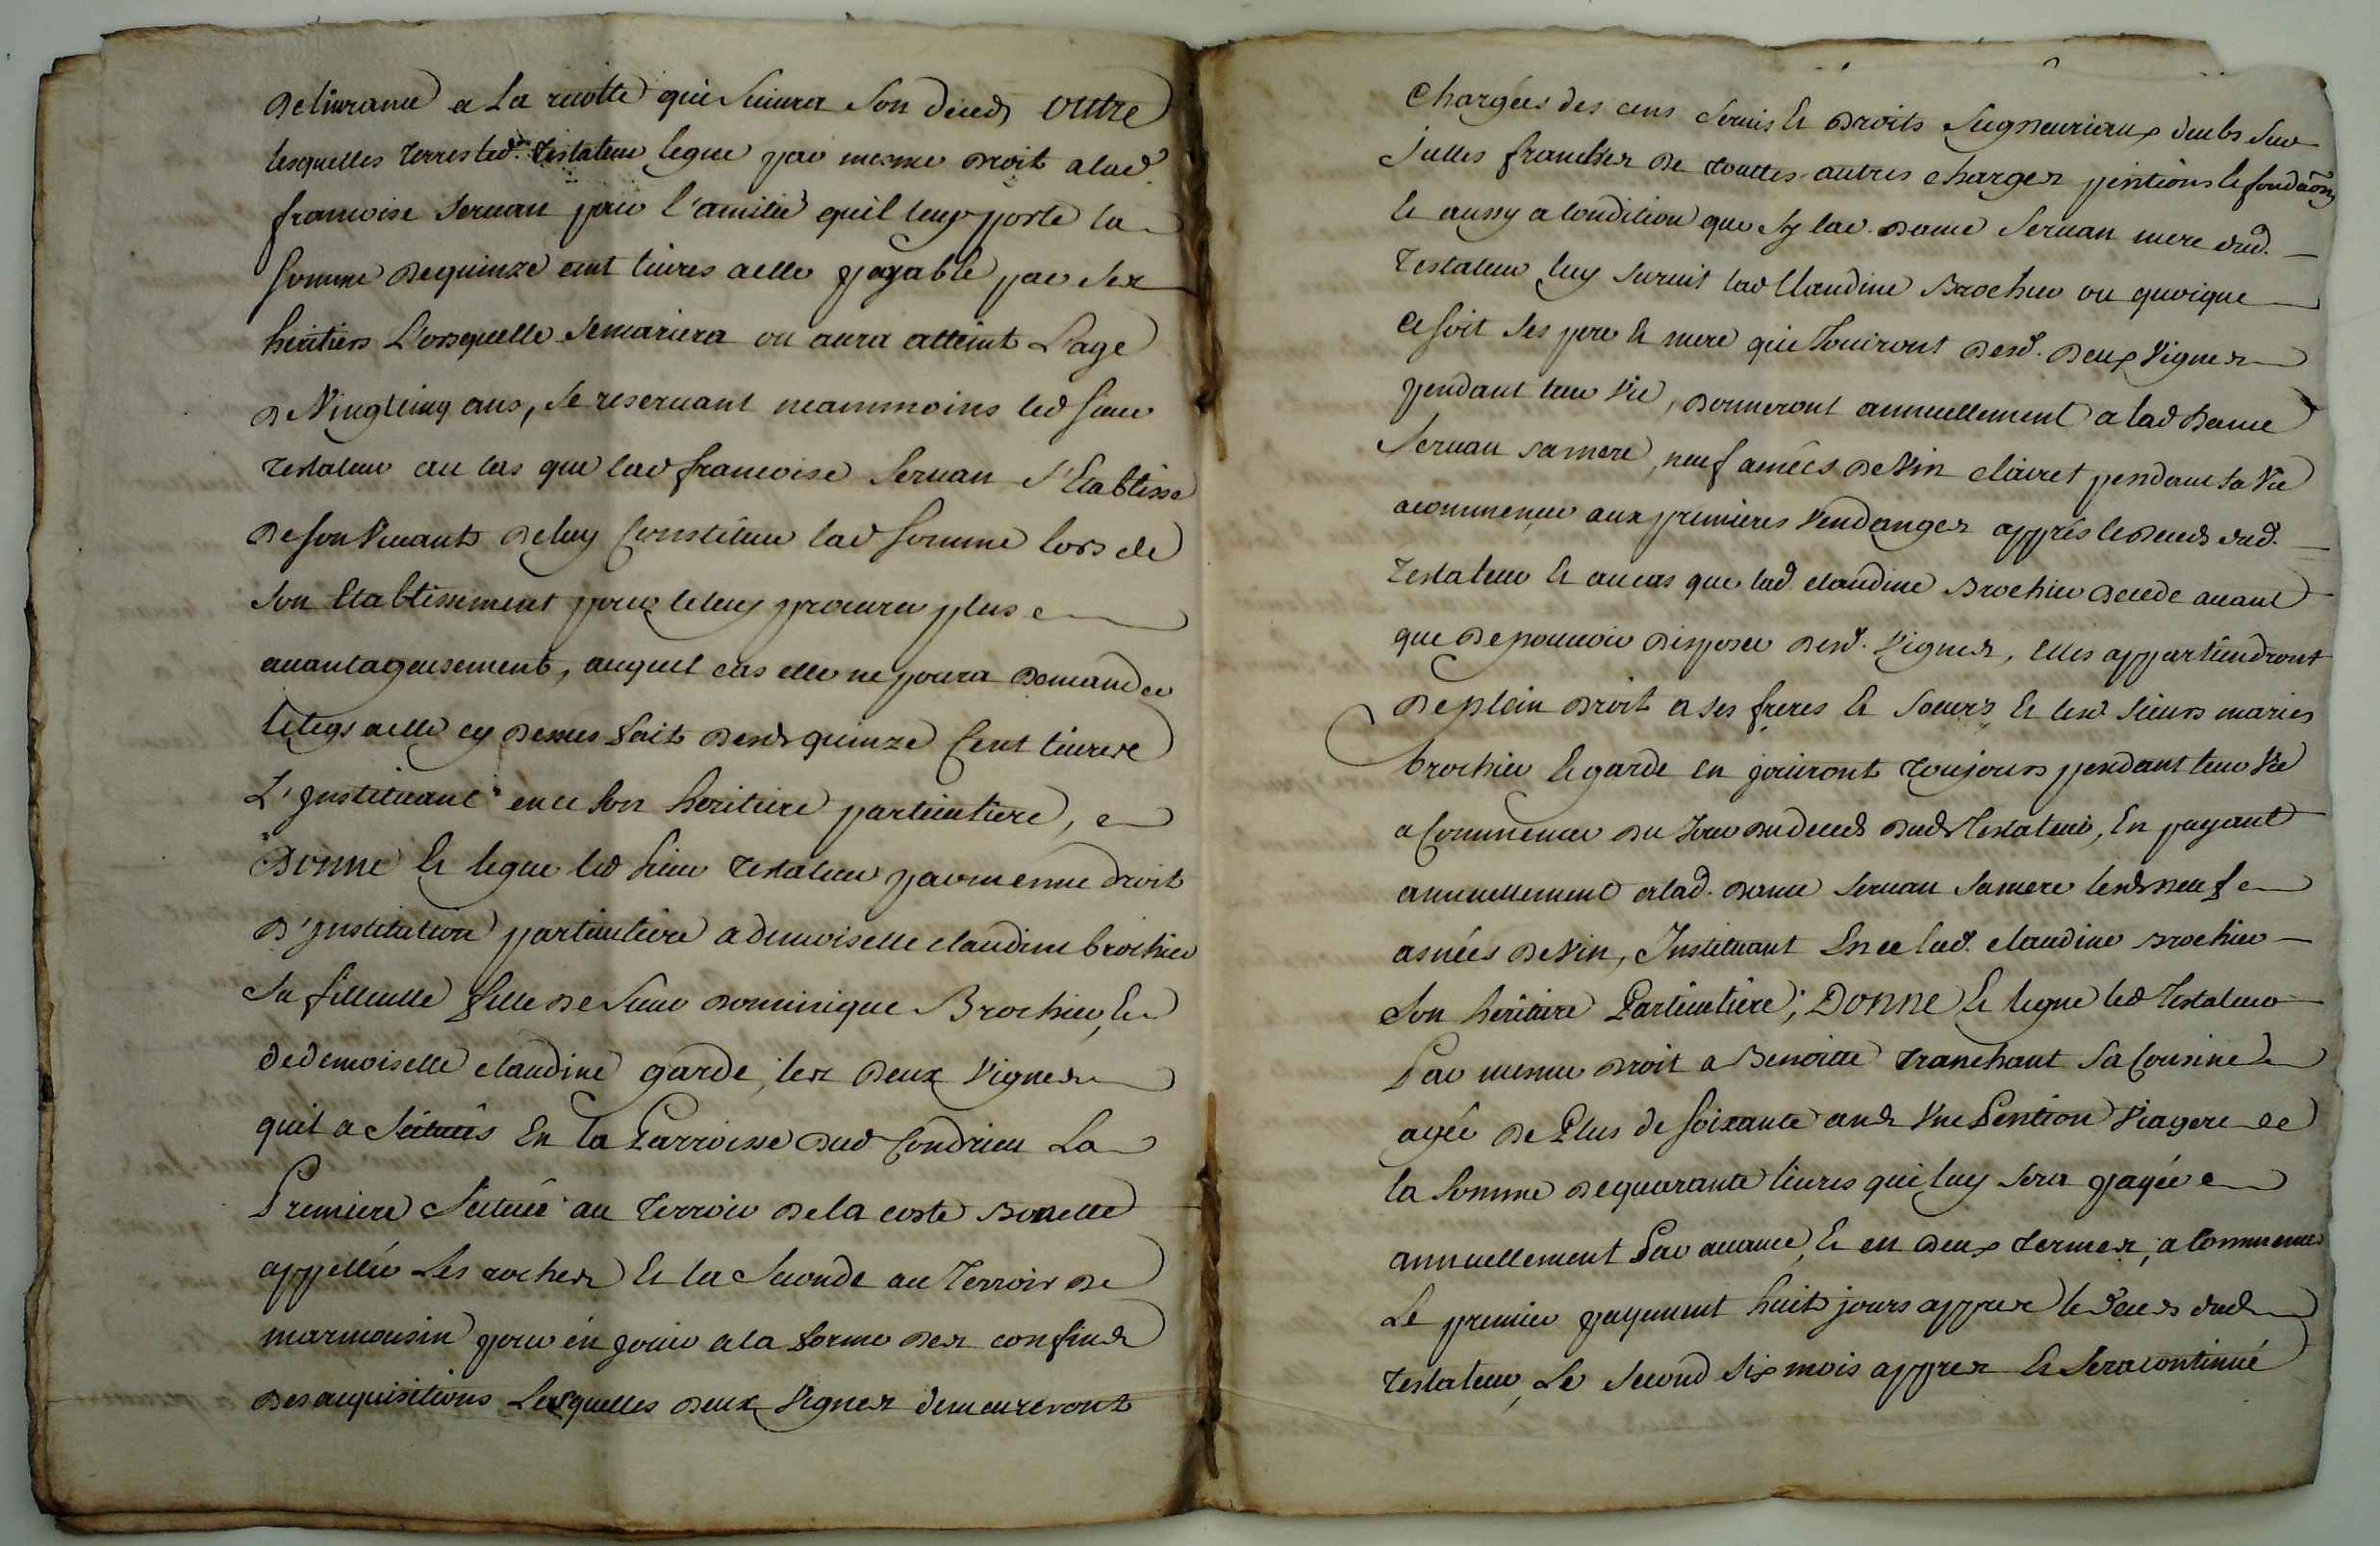 delivrance a La recolte qui suivra son deceds outre
lesquelles terres led. testateur legue par mesme droit a lad.
francoise servan pour l'amitié quil luy porte la
somme de quinze cent livres a elle payable par ses
heritiers Lorsquelle se mariera ou aura atteint L'age
de Vingt cinq ans, se reservant neammoins led sieur
testateur au cas que lad francoise servan s'Etablisse
de son Vivant de luy Constituer lad somme lors de
son Etablissement pour le luy procurer plus
avantageusement, auquel cas elle ne poura demander
le legs a elle cy dessus fait desd. quinze Cent livres
L'jnstituant en ce son heritiere particuliere,
Donne Et legue led sieur testateur par mesme droit
d'jnstitution particuliere a demoiselle claudine brochier
sa filleulle fille de sieur dominique Brochier, Et
de demoiselle claudine garde, les deux Vignes
quil a scituées En la Parroisse dud Condrieu La
Premiere scituée au terroir de la coste Bonnette
appellée Les rochers Et la seconde au Terroir de
marmousin pour en jouir a la forme des confins
des acquisitions Lesquelles deux Vignes demeureront
Chargées des cens servis Et droits seigneuriaux deubs sur
jcelles franches de touttes autres charges pentions Et fondaõns
Et aussy a Condition que sy lad. dame servan mere dud.
testateur luy survit lad Claudine Brochier ou quoique
ce soit ses pere Et mere qui Jouiront desd. deux Vignes
pendant leur Vie, donneront annuellement a lad dame
servan sa mere, neuf asnées de Vin clairet pendant sa Vie
a commencer aux premieres Vendanges apprés le deceds dud.
testateur Et au cas que lad. claudine Brochier decede avant
que de pouvoir disposer desd. Vignes, elles appartiendront
de plein droit a ses freres Et soeurs Et lesd sieurs mariés
brochier Et garde en joüiront toujours pendant leur Vie
a Commencer du Jour du deceds dud. testateur, En payant
annuellement a lad. dame servan sa mere lesd. neuf
asnées de Vin, Instituant En ce lad. claudine Brochier
son heritiere Particuliere; Donne Et legue led testateur
Par mesme droit a Benoitte tranchant sa Cousine
agée de Plus de soixante ans Une Pention Viagere de
la somme de quarante livres qui luy sera payée
annuellement Par avance, Et en deux termes, a Commencer
Le premier payement huit jours appres le deceds dud.
testateur, Le second six mois appres Et sera continué